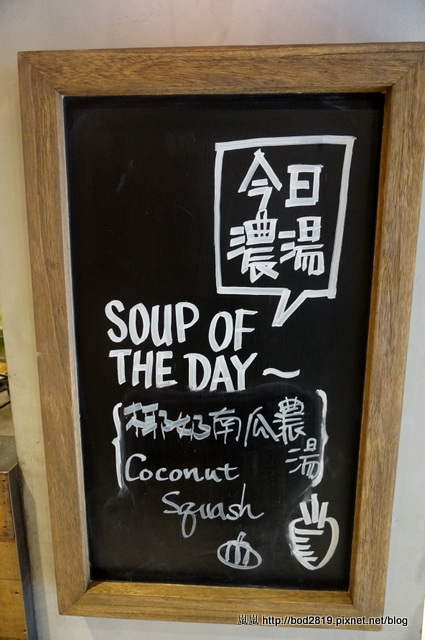 今日
濃湯
SOUP OF
THE DAY~
椰奶南瓜濃湯
Coconut
Squash
http://bod2819.pixnet.net/blog